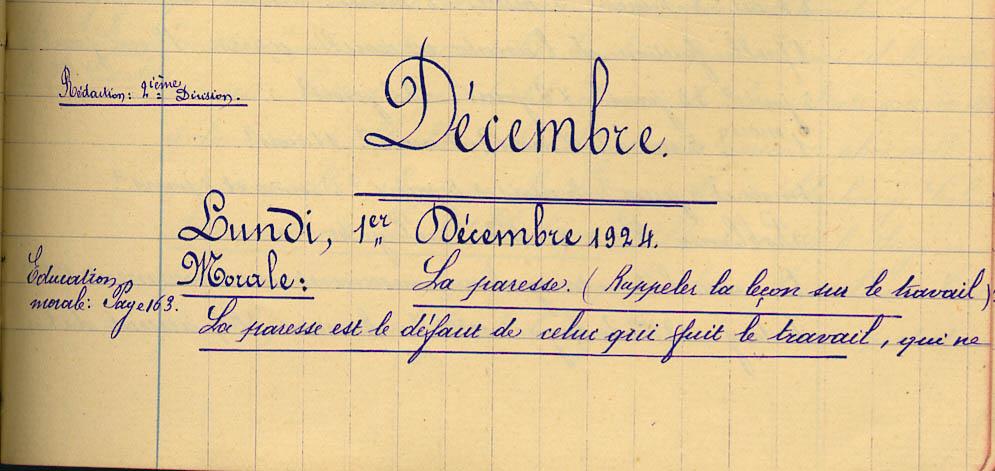 Rédaction: 2ième Division.
Décembre.
Lundi, 1er Décembre 1924.
Morale: La paresse. (Rappeler la leçon sur le travail):
Education
morale: Page 163.
La paresse est le défaut de celui qui fuit le travail, qui ne